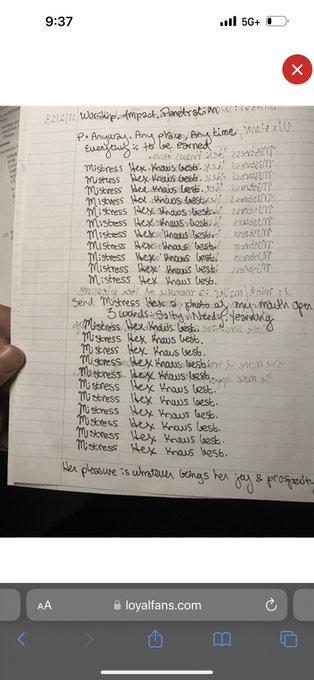 9:37
5G+
Worship, Impact, Penetration
P. Anyway. Any place, Any time,
Everything is to be earned
Mistress Hex Knows best.
Mistress Hex Knows best.
Mistress Hex Knows best.
Mistress Hex Knows best.
Mistress Hex Knows best.
Mistress Hex Knows best.
Mistress Hex Knows best.
Mistress Hex Knows best.
Mistress Hex Knows best.
Mistress Hex Knows best.
Mistress Hex Knows best.
Send Mistress Hex a photo of my mouth open
3 words: Needy Yearning
Mistress Hex Knows best.
Mistress Hex Knows best.
Mistress Hex Knows best.
Mistress Hex Knows best.
Mistress Hex Knows best.
Mistress Hex Knows best.
Mistress Hex Knows best.
Mistress Hex Knows best.
Mistress Hex Knows best.
Mistress Hex Knows best.
Mistress Hex Knows best.
Her pleasure is whatever brings her joy & prosperit
AA
loyalfans.com